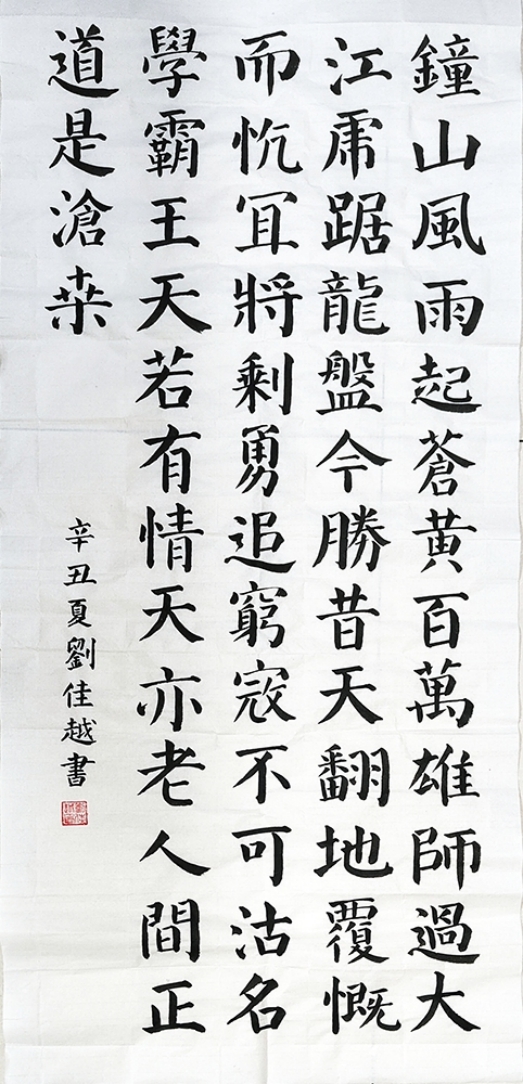 鐘山風雨起蒼黄百萬雄師過大
江虎踞龍盤今勝昔天翻地覆慨
而忼冝將剩勇追窮寇不可沽名
學霸王天若有情天亦老人間正
道是滄桒
辛丑夏劉佳越書